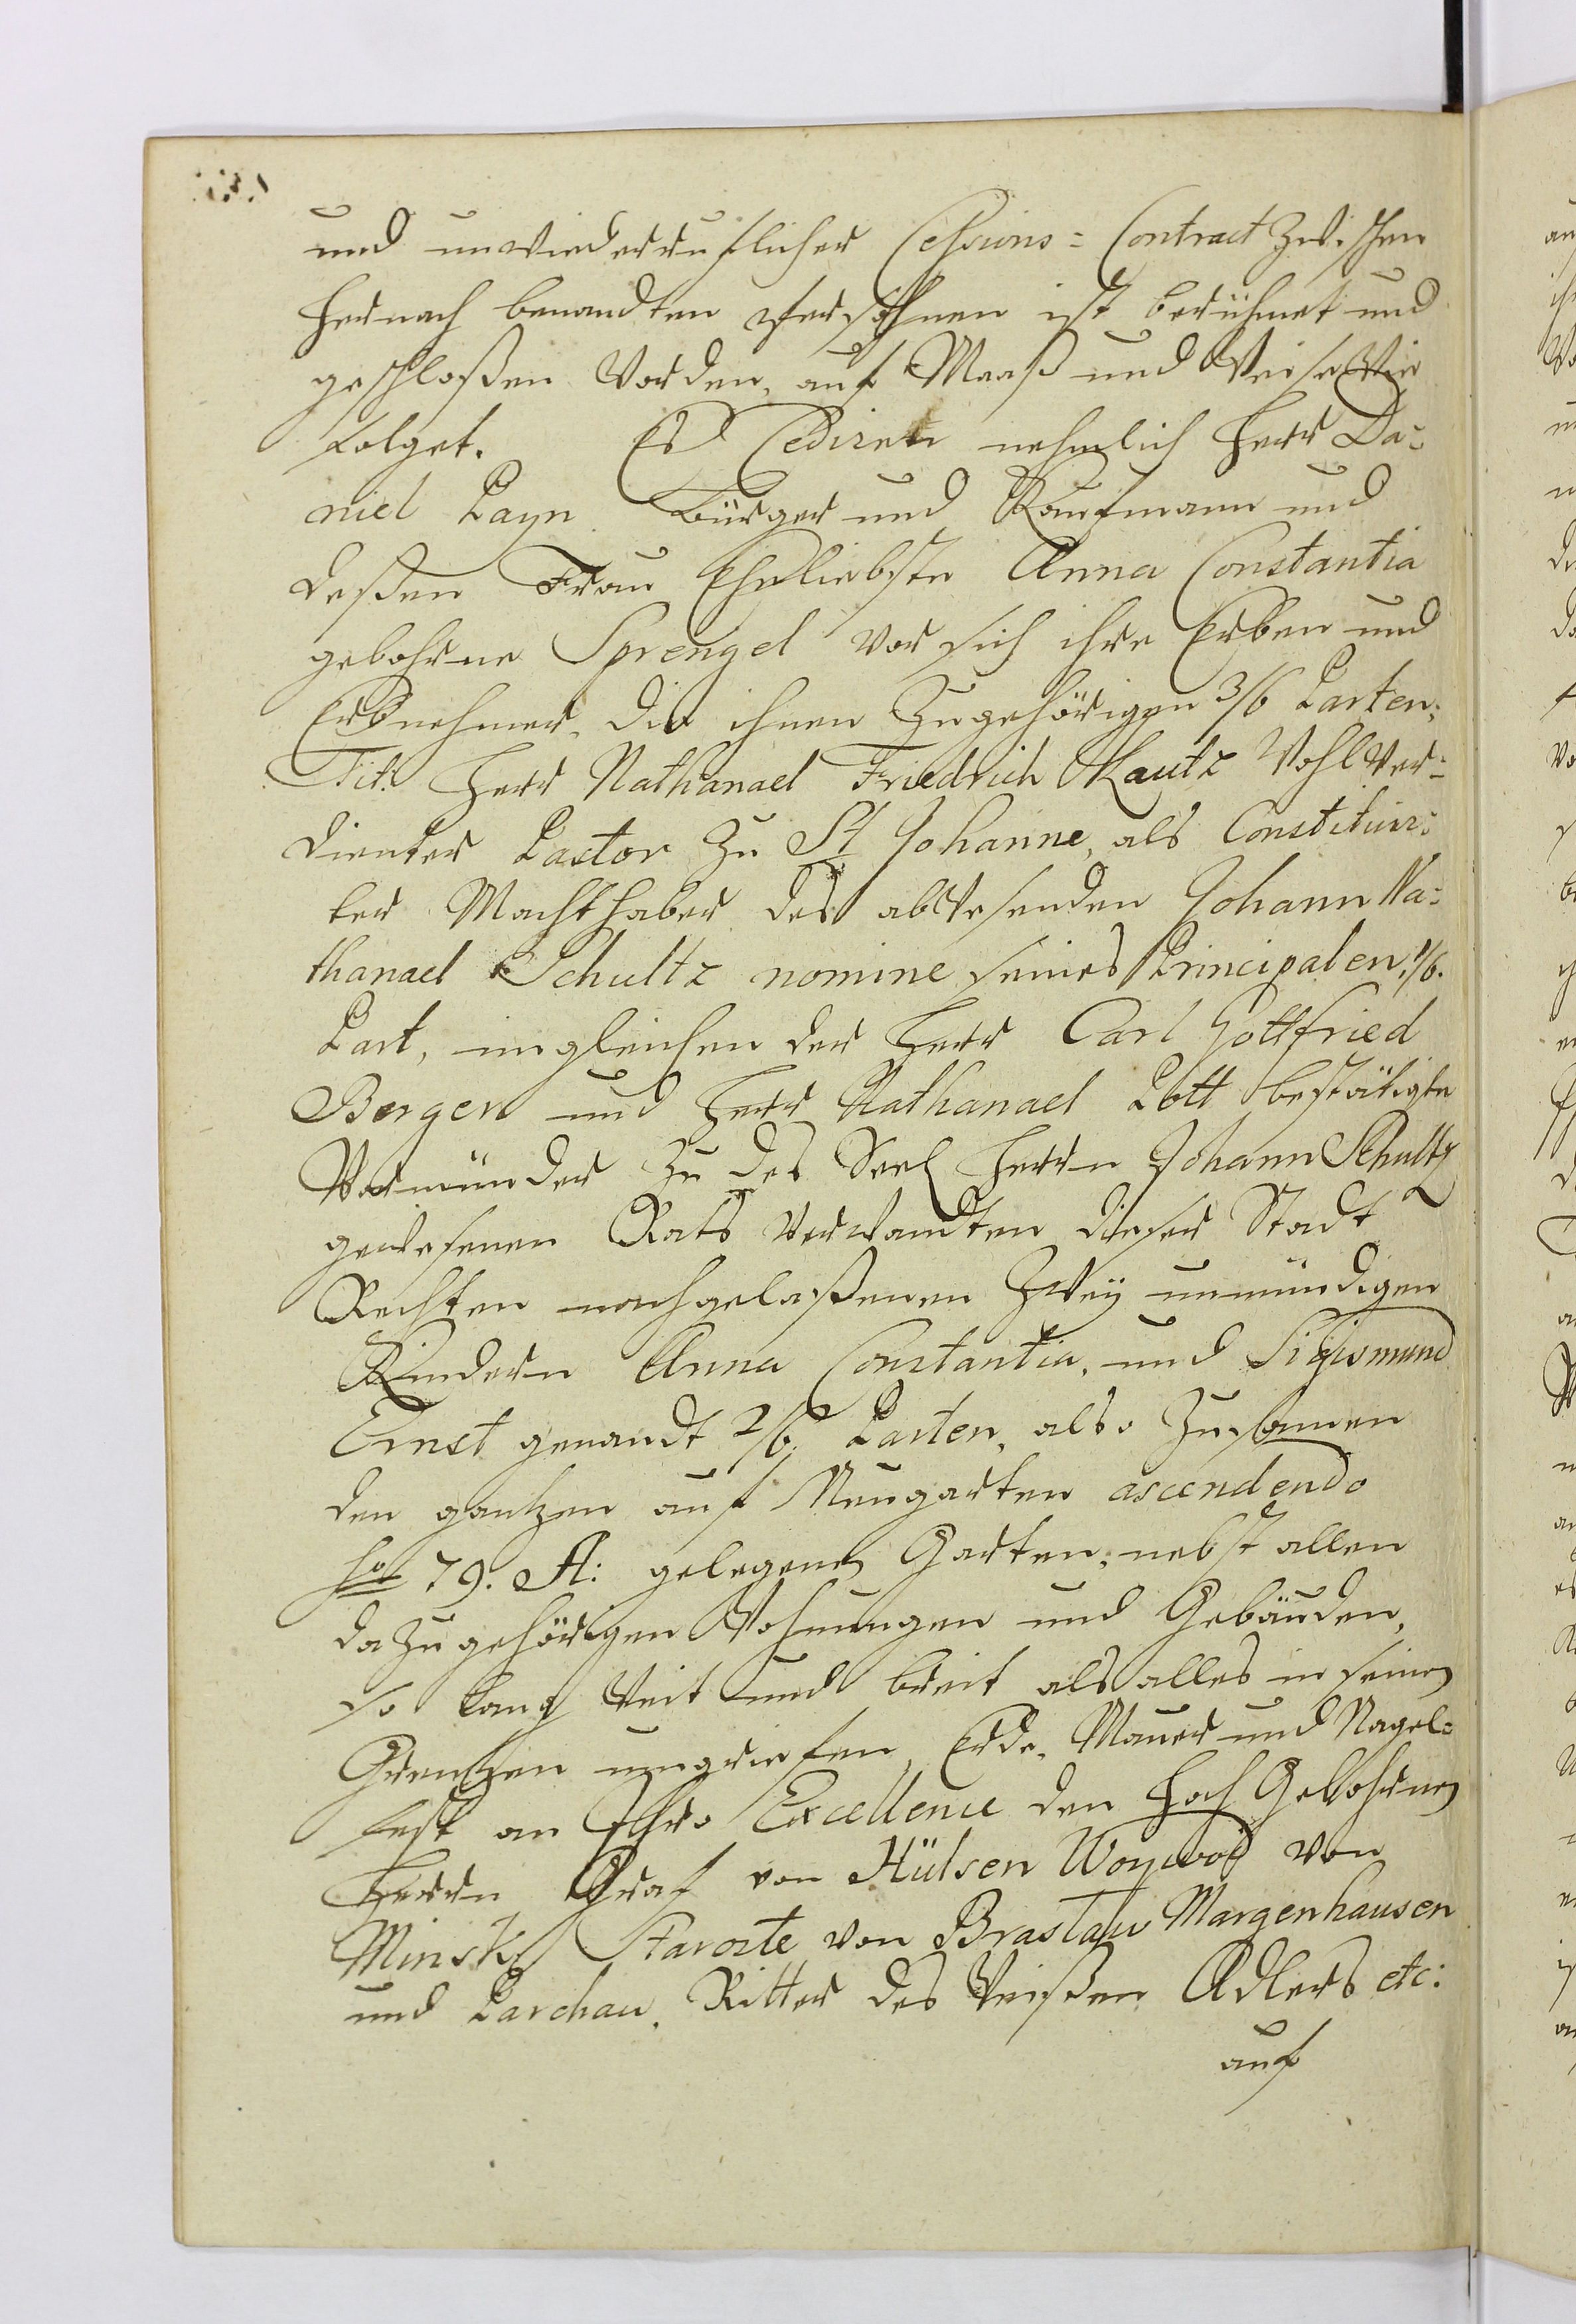 und unwiederruflicher Cessions = Contract zwischen
hernach benandten Persohnen ist berühmet und
geschloßen worden, auf Maaß und Weise wie
folget. Es Cediren nehmlich Herr Da=
niel Payn Bürger und Kaufmann und
deßen Frau Eheliebste Anna Constantia
gebohrne Sprengel vor sich ihre Erben und
Erbnehmer, die ihnen zugehörigen 3/6 Parten,
Tit: Herr Nathanael Friedrich Kautz Wohlver=
dienter Pastor zu St Johanne, als Constituir=
ter Machthaber des abwesenden Johann Na=
thanael Schultz nomine seines Principalen, 1/6.
Part, imgleichen der Herr Carl Gottfried
Bergen und Herr Nathanael Pott bestätigte
Vormünder zu des Seel Herrn Johann Schultz
gewesenen Rats Verwandten dieser Stadt
Rechten nachgelaßenen zwey unmündigen
Kindern Anna Constantia, und Sigismund
Ernst genandt 2/6. Parten, also zusamen
den gantzen auf Neugarten ascendendo
fol 79. A: gelegenen Garten, nebst allen
dazu gehörigen Wohnungen und Gebäuden,
so lang weit und breit als alles in seinen
Grentzen umgriefen, Erd, Mauer und Nagel=
fest an Ihro Excellence den Hoch Gebohrnen
Herrn Graf von Hülsen Woywod von
Minsk Staroste von Braslaw Margenhausen
und Parchau, Ritter des Weißen Adlers etc:
auf